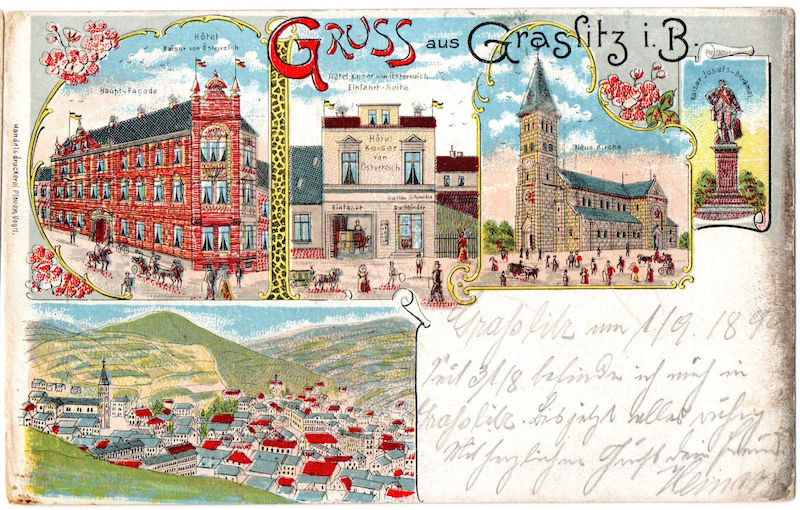 GRUSS aus Graslitz i. B.
Hôtel
Kaiser von Österreich
Haupt-Façade
Hôtel Kaiser von Österreich
Einfahrt-Seite
Hôtel
Kaiser
von
Österreich
Einfahrt
Buchbinder
Neue Kirche
Kaiser Josefs-Denkmal
Handelsdruckerei
Grasslitz am 1/9. 189
Seit 31/8. befinde ich mich in
Grasslitz. Bis jetzt alles ruhig
Mit herzlichem Gruß Dein Freund